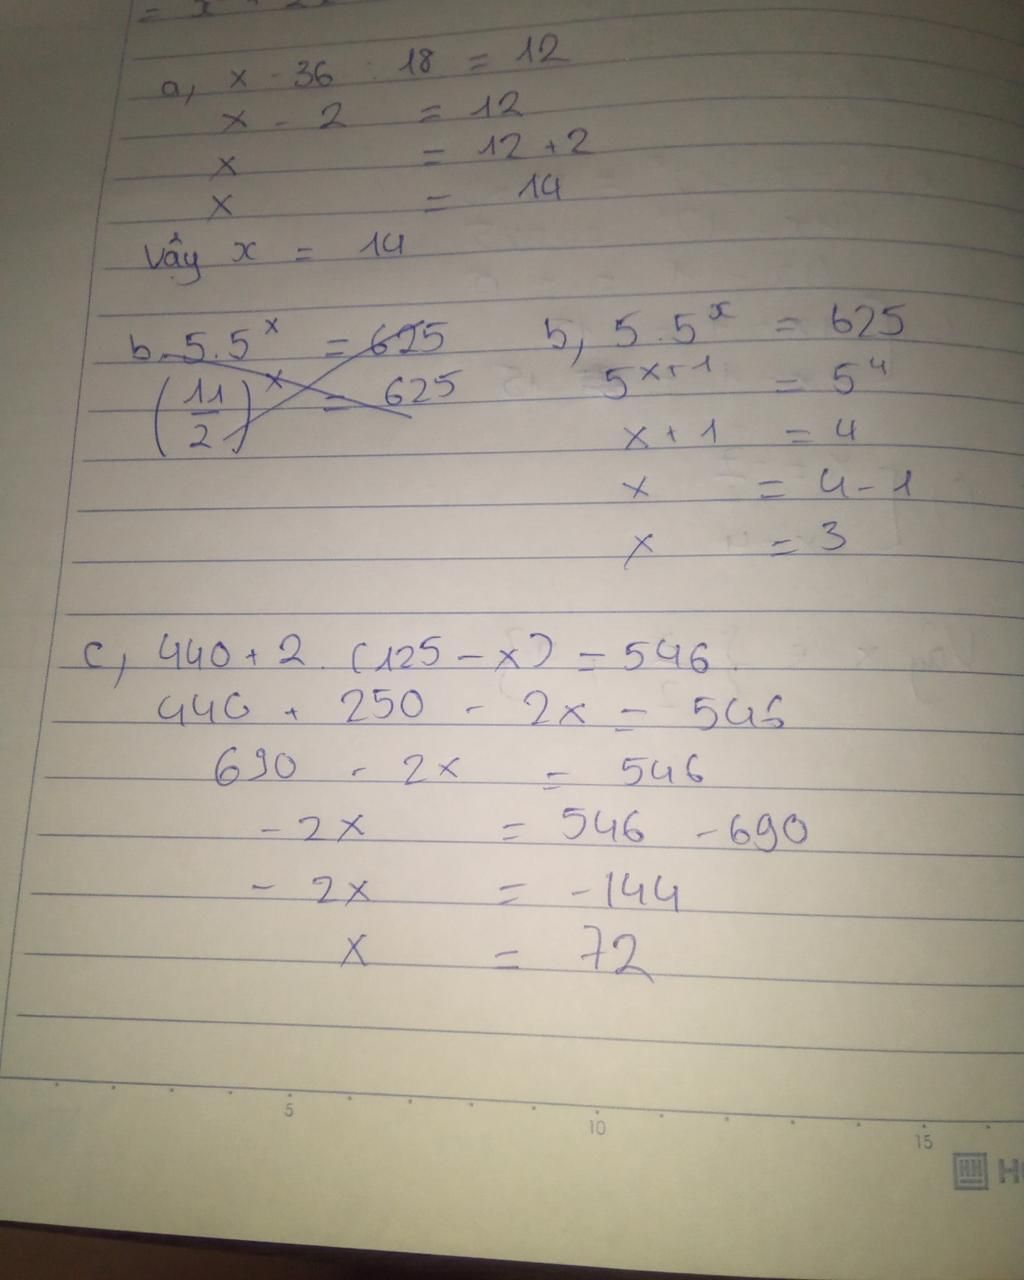 a, x - 36 : 18 = 12
x - 2 = 12
x = 12 + 2
x = 14
Vây x = 14
b. 5.5^x = 625
(11/2)^x = 625
b, 5.5^x = 625
5^x+1 = 5^4
x + 1 = 4
x = 4 - 1
x = 3
c, 440 + 2. (125 - x) = 546
440 + 250 - 2x = 546
690 - 2x = 546
- 2x = 546 - 690
- 2x = -144
x = 72
5 10 15
HH